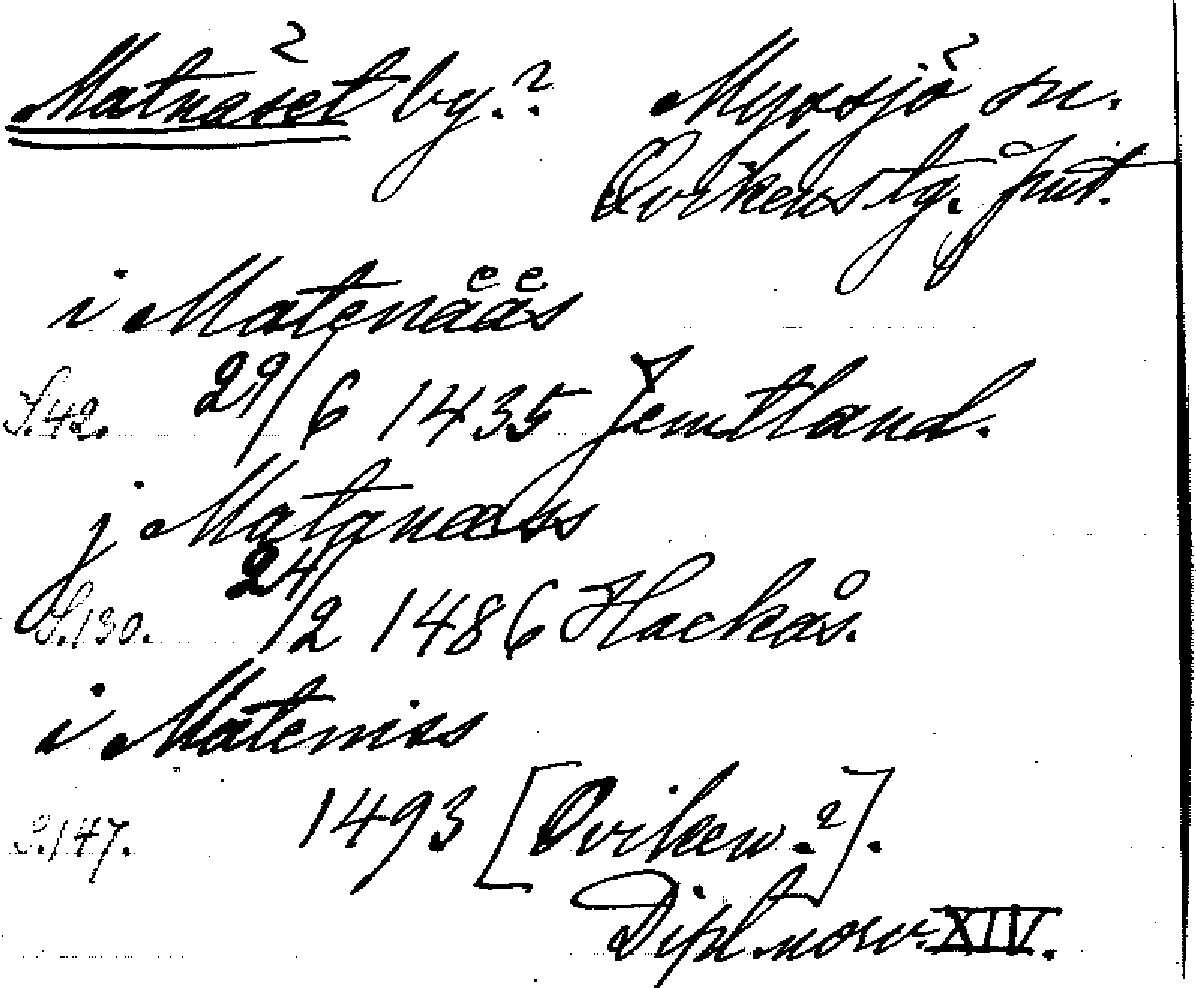 Matnäset by.? Myssjö sn.
Ovikens tg. Jmt.
i Matenåås
S. 42. 29/6 1435 Jemtland.
j Matanæss
S. 130. 24/2 1486 Hackås.
i Mateniss
S. 147. 1493 [Oviken?].
Dipl. norv. XIV.